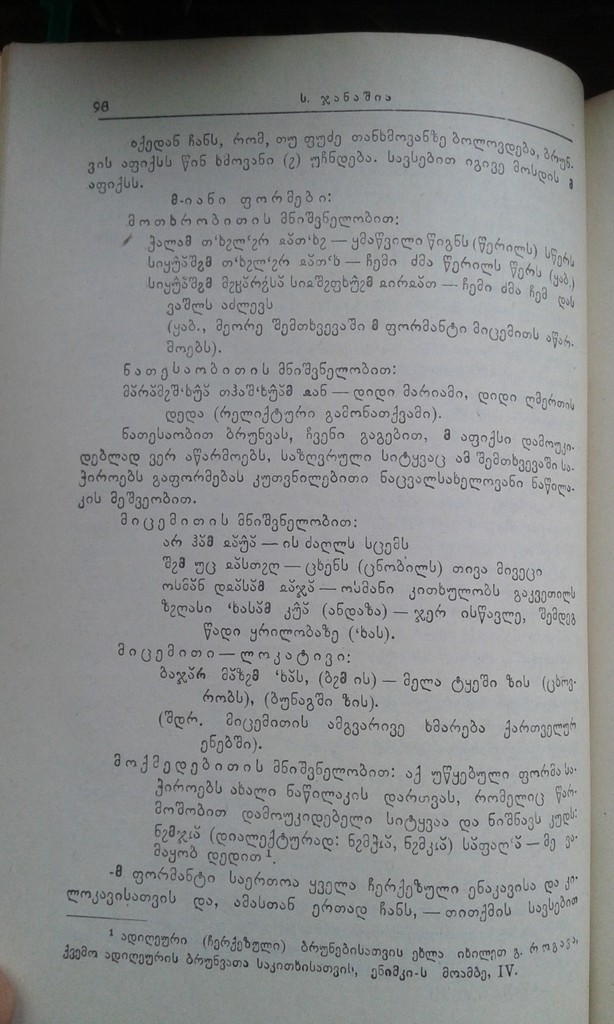 98
ს. ჯანაშია
აქედან ჩანს, რომ, თუ ფუძე თანხმოვანზე ბოლოვდება, ბრუნ-
ვის აფიქსს წინ ხმოვანი (ჷ) უჩნდება. სავსებით იგივე მოსდის მ
აფიქსს.
მ-იანი ფორმები:
მოთხრობითის მნიშვნელობით:
— ყმაწვილი წიგნს (წერილს) სწერს
— ჩემი ძმა წერილს წერს (ყაბ.)
— ჩემი ძმა ჩემ დას
ვაშლს აძლევს
(ყაბ., მეორე შემთხვევაში მ ფორმანტი მიცემითს აწარ-
მოებს).
ნათესაობითის მნიშვნელობით:
— დიდი მარიამი, დიდი ღმერთის
დედა (რელიქტური გამონათქვამი).
ნათესაობით ბრუნვას, ჩვენი გაგებით, მ აფიქსი დამოუკი-
დებლად ვერ აწარმოებს, საზღვრული სიტყვაც ამ შემთხვევაში სა-
ჭიროებს გაფორმებას კუთვნილებითი ნაცვალსახელოვანი ნაწილა-
კის მეშვეობით.
მიცემითის მნიშვნელობით:
— ის ძაღლს სცემს
— ცხენს (ცნობილს) თივა მივეცი
— ოსმანი კითხულობს გაკვეთილს
(ანდაზა) — ჯერ ისწავლე, შემდეგ
წადი ყრილობაზე (ʽხას).
მიცემითი — ლოკატივი:
— მელა ტყეში ზის (ცხოვ-
რობს), (ბუნაგში ზის).
(შდრ. მიცემითის ამგვარივე ხმარება ქართველურ
ენებში).
მოქმედებითის მნიშვნელობით: აქ უწყებული ფორმა სა-
ჭიროებს ახალი ნაწილაკის დართვას, რომელიც წარ-
მოშობით დამოუკიდებელი სიტყვაა და ნიშნავს კუდს:
(დიალექტურად: — მე ვა-
მაყობ დედით¹.
-მ ფორმანტი საერთოა ყველა ჩერქეზული ენაკავისა და კი-
ლოკავისათვის და, ამასთან ერთად ჩანს, — თითქმის სავსებით
¹ ადიღეური (ჩერქეზული) ბრუნებისათვის ეხლა იხილეთ გ. როგავა,
ქვემო ადიღეურის ბრუნვათა საკითხისათვის, ენიმკი-ს მოამბე, IV.